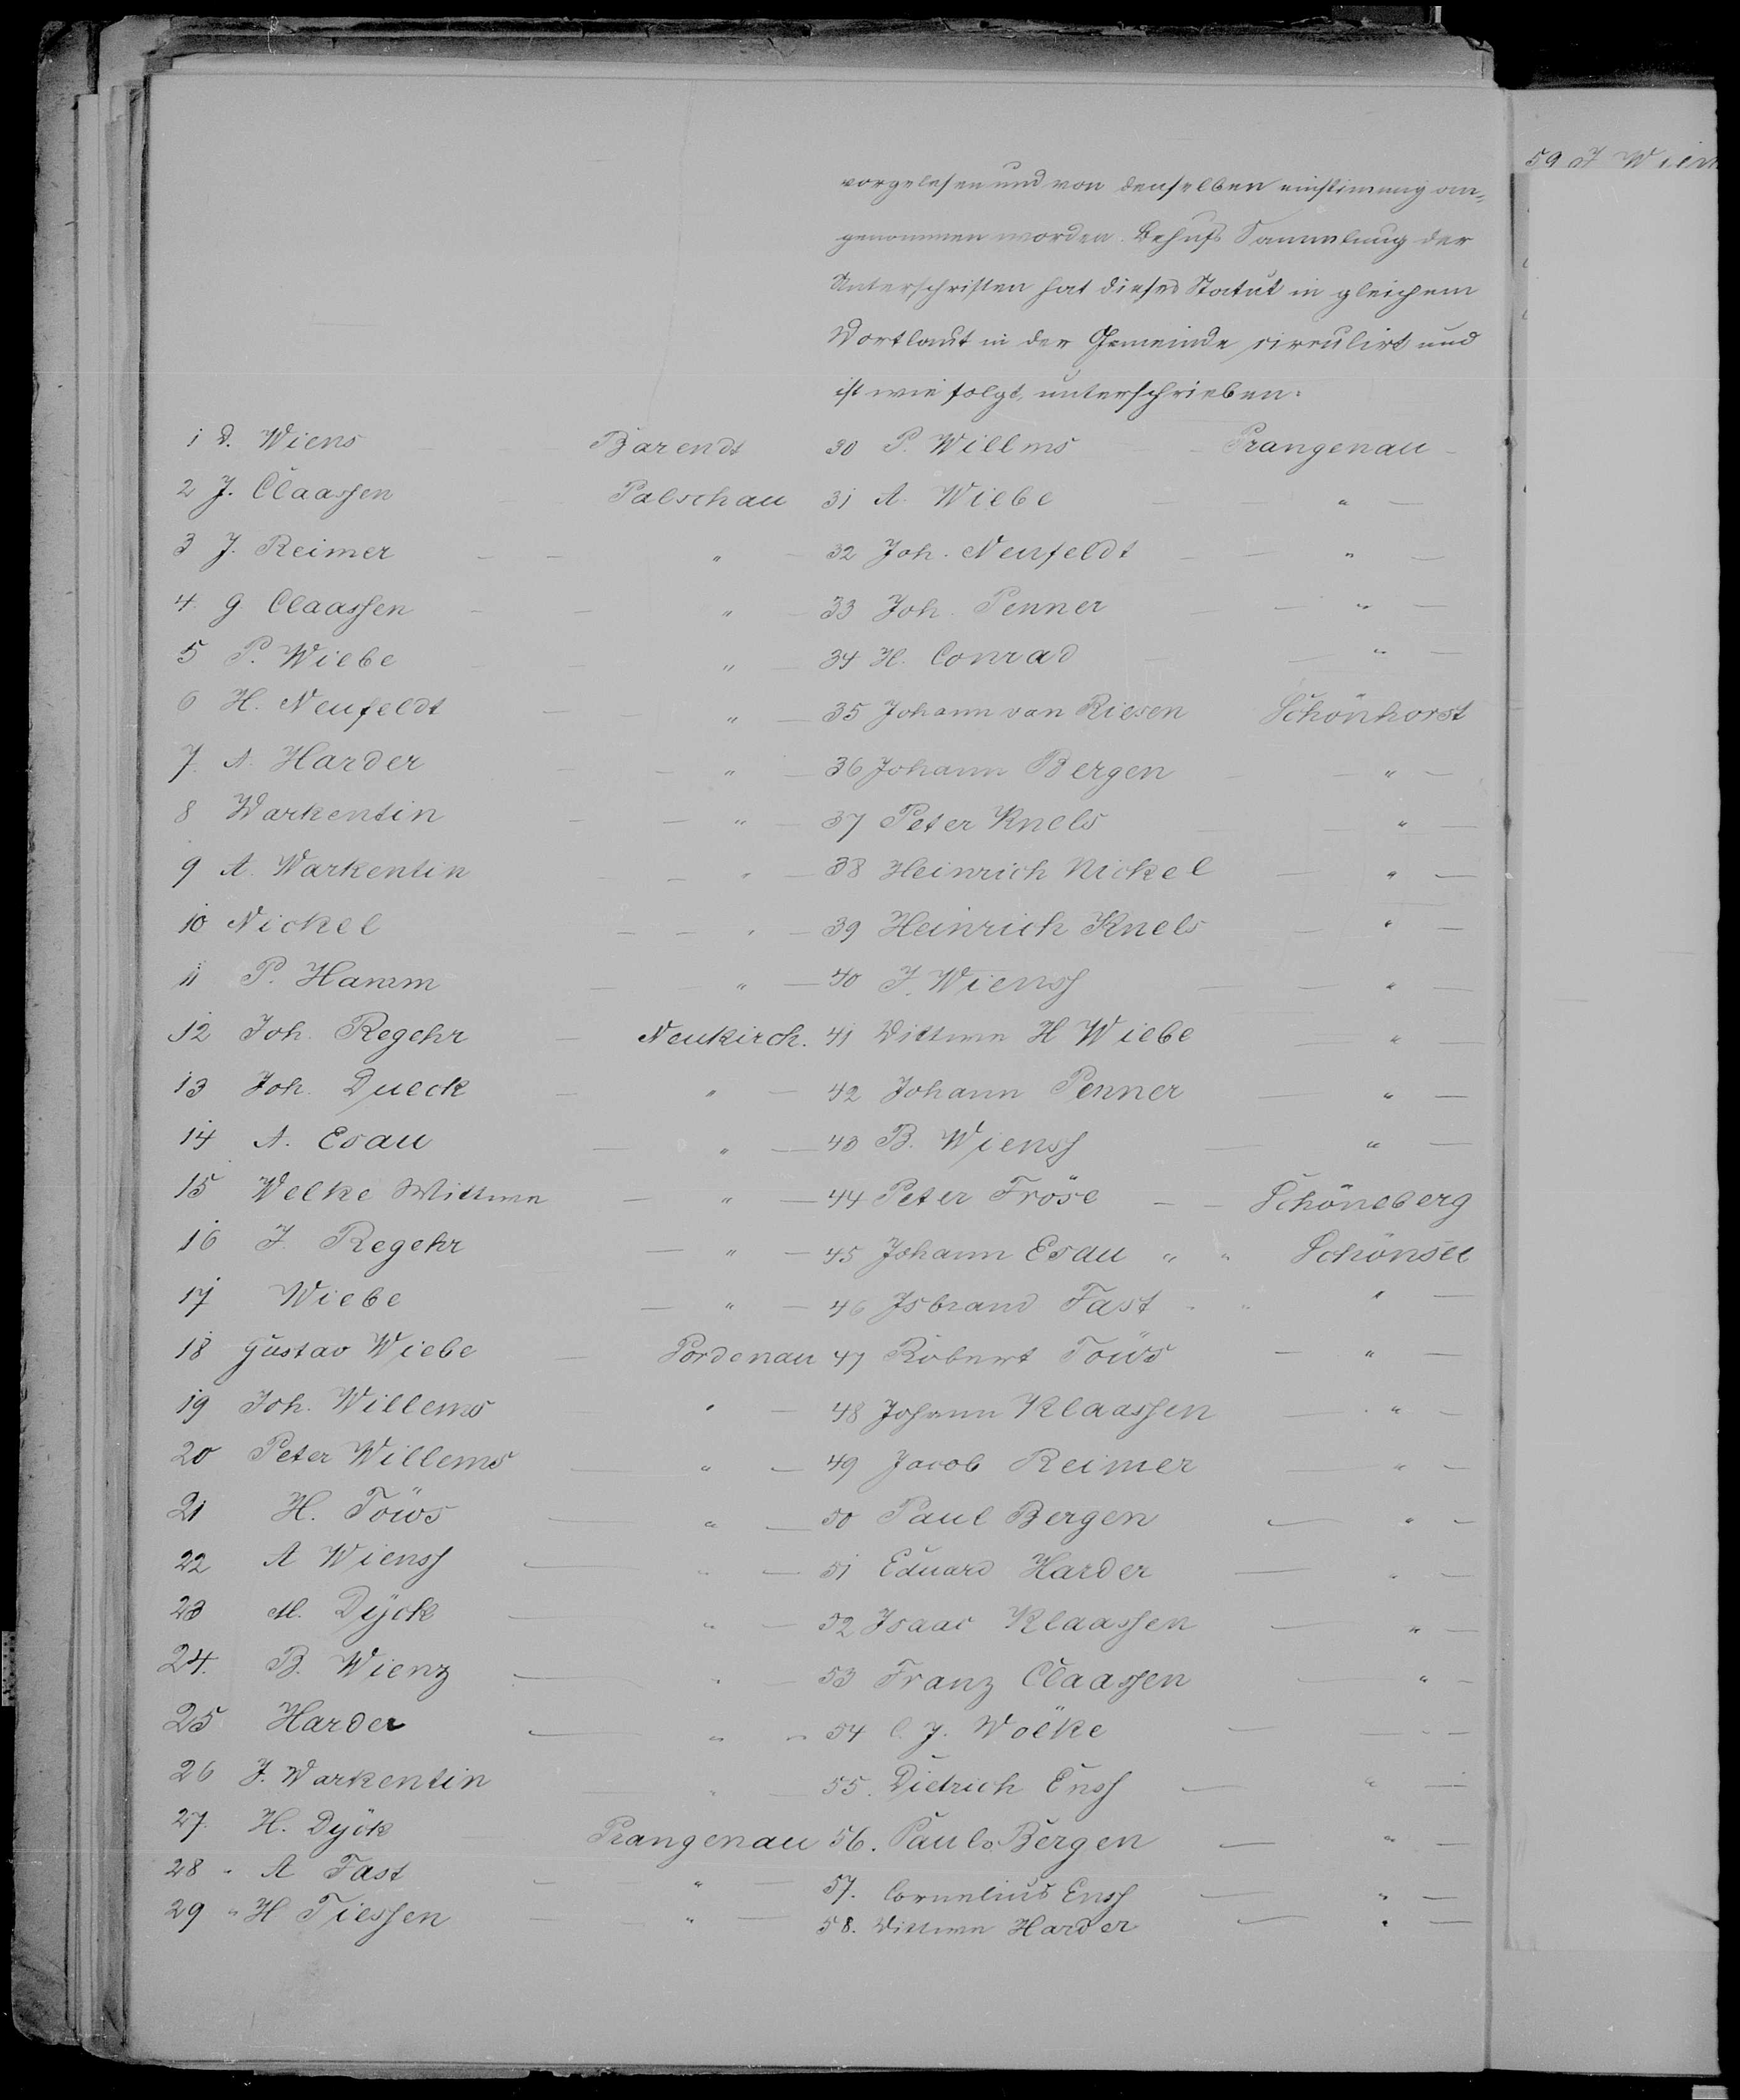 vorgelesen und von denselben einstimmig an-
genommen worden. Behufs Sammlung der
Unterschriften hat dieses Statut in gleichem
Wortlaut in der Gemeinde circulirt und
ist wie folgt, unterschrieben:
1 D. Wiens Barendt
2 J. Claassen Palschau
3 J. Reimer — — " —
4. G. Claassen — — " —
5 P. Wiebe — — " —
6 H. Neufeldt — — " —
7. A. Harder — — " —
8 Warkentin — — " —
9 A. Warkentin — — " —
10 Nickel — — " —
11 P. Hamm — — " —
12 Joh. Regehr — Neukirch.
13 Joh. Dueck — " —
14 A. Esau — " —
15 Welke Wittwe — " —
16 J. Regehr — " —
17 Wiebe — " —
18 Gustav Wiebe — Pordenau
19 Joh. Willems — " —
20 Peter Willems — " —
21 H. Töws — " —
22 A Wienss — " —
23 M. Dÿck — " —
24. B. Wienz — " —
25 Harder — " —
26 J. Warkentin — " —
27. H. Dÿck Prangenau
28 " A Fast — " —
29 " H Tiessen — " —
30 P. Willms — Prangenau —
31 A. Wiebe — — " —
32 Joh. Neufeldt — — " —
33 Joh. Penner — — " —
34 H. Conrad — — " —
35 Johann van Riesen Schönhorst
36 Johann Bergen — — " —
37 Peter Knels — — " —
38 Heinrich Nickel — " —
39 Heinrich Knels — " —
40 J. Wienss — — " —
41 Wittwe H Wiebe — " —
42 Johann Penner — " —
43 B. Wienss — " —
44 Peter Fröse — — Schöneberg
45 Johann Esau " " Schönsee
46 Isbrand Fast " " " —
47 Robert Töws — " —
48 Johann Klaassen — " —
49 Jacob Reimer — " —
50 Paul Bergen — " —
51 Eduard Harder — " —
52 Isaac Klaassen — " —
53 Franz Claassen — " —
54 C. J. Wölke — — " —
55. Dietrich Enss — " —
56. Pauls Bergen — " —
57. Cornelius Enss — " —
58. Wittwe Harder — " —
59 J Wien